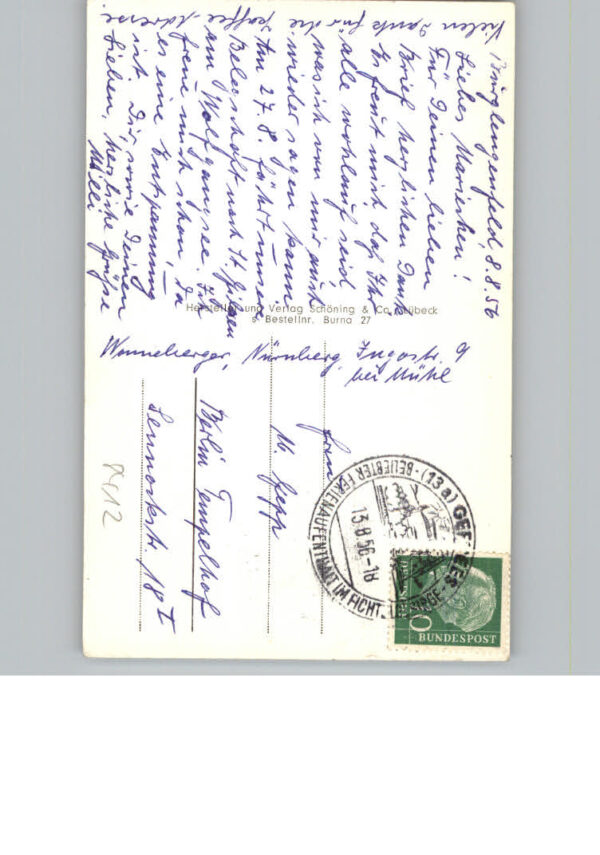 Vielen Dank für die
Kaffee-Adresse.
Burglengenfeld, 8.8.56
Liebes Mariechen!
Für Deinen lieben
Brief herzlichen Dank.
Es freut mich daß Ihr
alle wohlauf seid,
was ich von mir auch
wieder sagen kann.
Am 27.8. fährt unsere
Belegschaft nach St. Gilgen
am Wolfgangsee. Ich
freue mich schon, da
es eine Entspannung
ist. Dir, sowie Deinen
Lieben, herzliche Grüße
Milli
Herstellung und Verlag Schöning & Co., Lübeck
Bestellnr. Burna 27
Wonneberger, Nürnberg, Ingostr. 9
bei Mühl
Frau
M. Hepp
Berlin Tempelhof
18 I
8412
(13a) GEFREES
BELIEBTER FERIENAUFENTHALT IM FICHTELGEBIRGE
13.8.56-18
BUNDESPOST